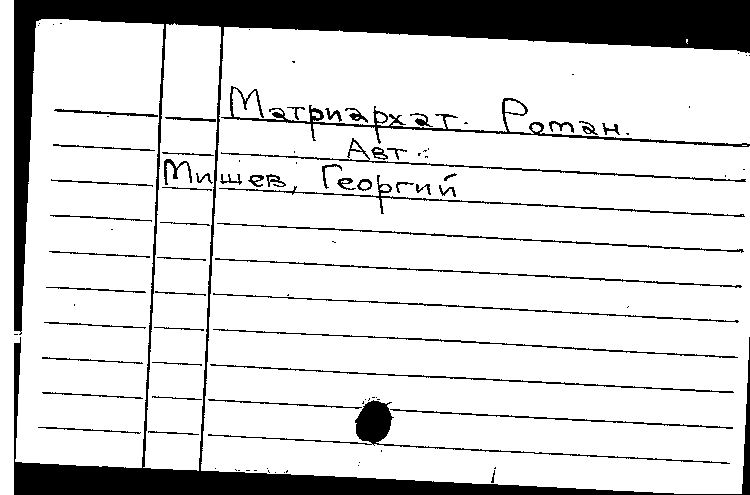 Матриархат. Роман.
Авт.:
Мишев, Георгий